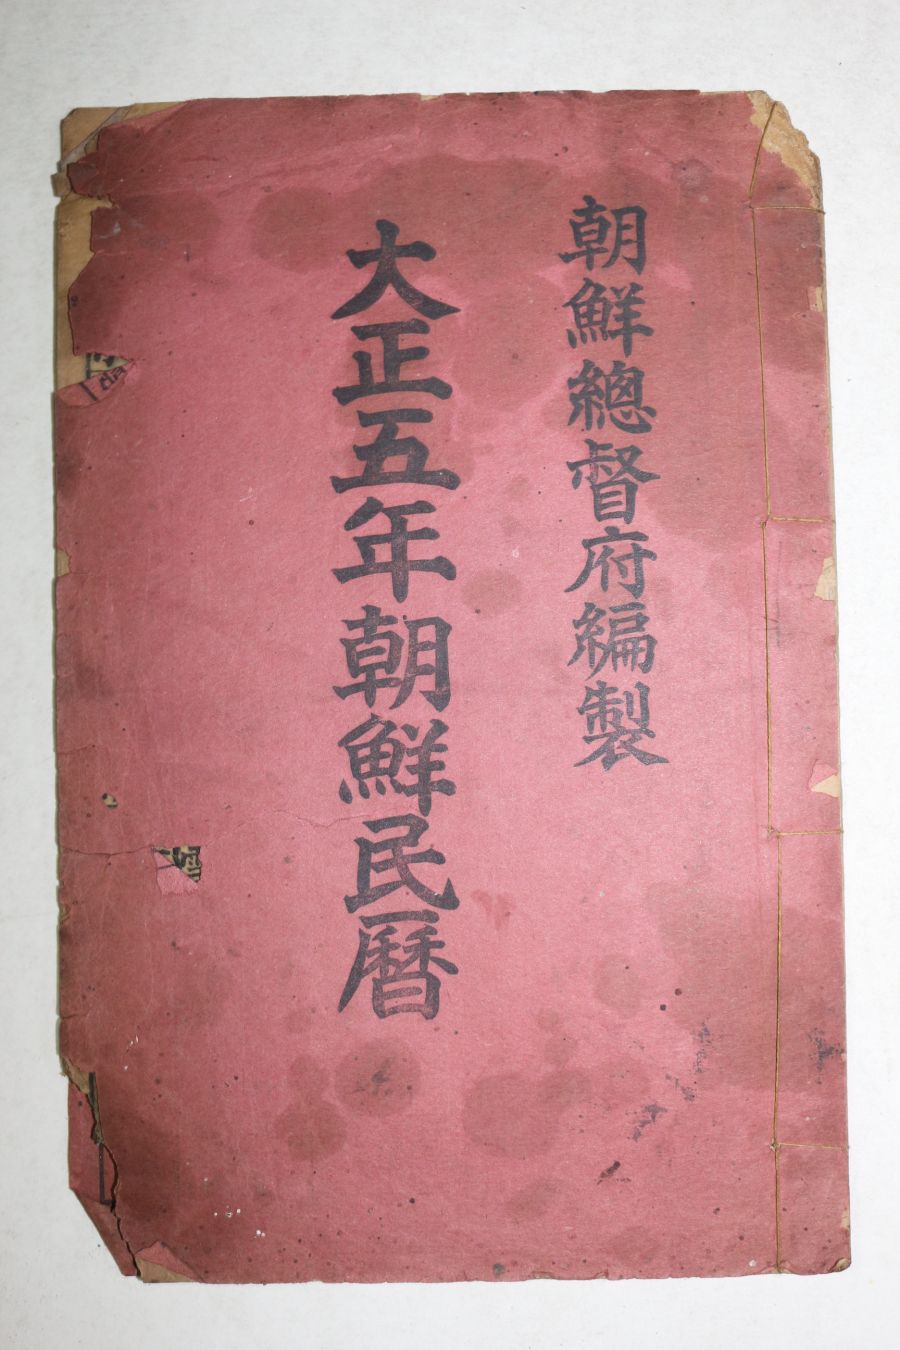 朝鮮總督府編製
大正五年朝鮮民曆